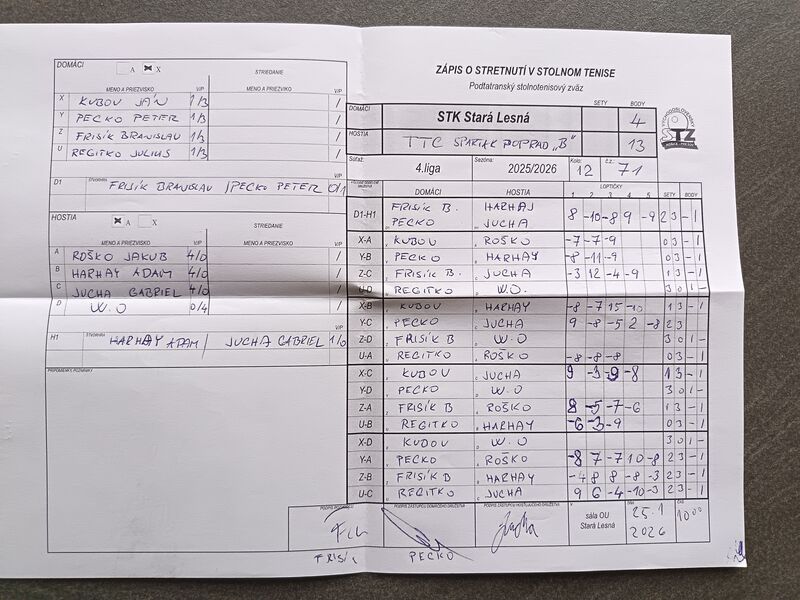 DOMÁCI
A X
STRIEDANIE
MENO A PRIEZVISKO V/P MENO A PRIEZVISKO V/P
X KUBOV JÁN 1/3 /
Y PECKO PETER 1/3 /
Z FRISÍK BRANISLAV 1/3 /
U REGITKO JULIUS 1/3 /
V/P
D1 FRISÍK BRANISLAV / PECKO PETER 0/1
HOSTIA
A X
STRIEDANIE
MENO A PRIEZVISKO V/P MENO A PRIEZVISKO V/P
A ROŠKO JAKUB 4/0 /
B HARHAY ADAM 4/0 /
C JUCHA GABRIEL 4/0 /
D W.O 0/4 /
V/P
H1 HARHAY ADAM / JUCHA GABRIEL 1/0
PRIPOMIENKY, POZNÁMKY
ZÁPIS O STRETNUTÍ V STOLNOM TENISE
Podtatranský stolnotenisový zväz
SETY BODY
DOMÁCI STK Stará Lesná 4
HOSTIA TTC SPARTAK POPRAD „B" 13
STZ
Súťaž: 4.liga Sezóna: 2025/2026 Kolo: 12 č.z.: 71
DOMÁCI HOSTIA LOPTIČKY SETY BODY
1 2 3 4 5
D1-H1 FRISÍK B. HARHAJ
PECKO JUCHA 8 -10 -8 9 -9 2 3 - 1
X-A KUBOV ROŠKO -7 -7 -9 0 3 - 1
Y-B PECKO HARHAY -8 -11 -9 0 3 - 1
Z-C FRISÍK B. JUCHA -3 12 -4 -9 1 3 - 1
U-D REGITKO W.O. 3 0 1 -
X-B KUBOV HARHAY -8 -7 15 -10 1 3 - 1
Y-C PECKO JUCHA 9 -8 -5 2 -8 2 3
Z-D FRISÍK B W.O 3 0 1 -
U-A REGITKO ROŠKO -8 -8 -8 0 3 - 1
X-C KUBOV JUCHA 9 -3 -9 -8 1 3 - 1
Y-D PECKO W.O 3 0 1 -
Z-A FRISÍK B ROŠKO 8 -5 -7 -6 1 3 - 1
U-B REGITKO HARHAY -6 -3 -9 0 3 - 1
X-D KUBOV W.O 3 0 1 -
Y-A PECKO ROŠKO -8 7 -7 10 -8 2 3 - 1
Z-B FRISÍK B HARHAY -4 8 8 -8 -3 2 3 - 1
U-C REGITKO JUCHA 9 6 -4 -10 -3 2 3 - 1
PODPIS ROZHODCU PODPIS ZÁSTUPCU DOMÁCEHO DRUŽSTVA PODPIS ZÁSTUPCU HOSŤUJÚCEHO DRUŽSTVA
V sála OU
Stará Lesná
25.1
2026
10 00
PECKO